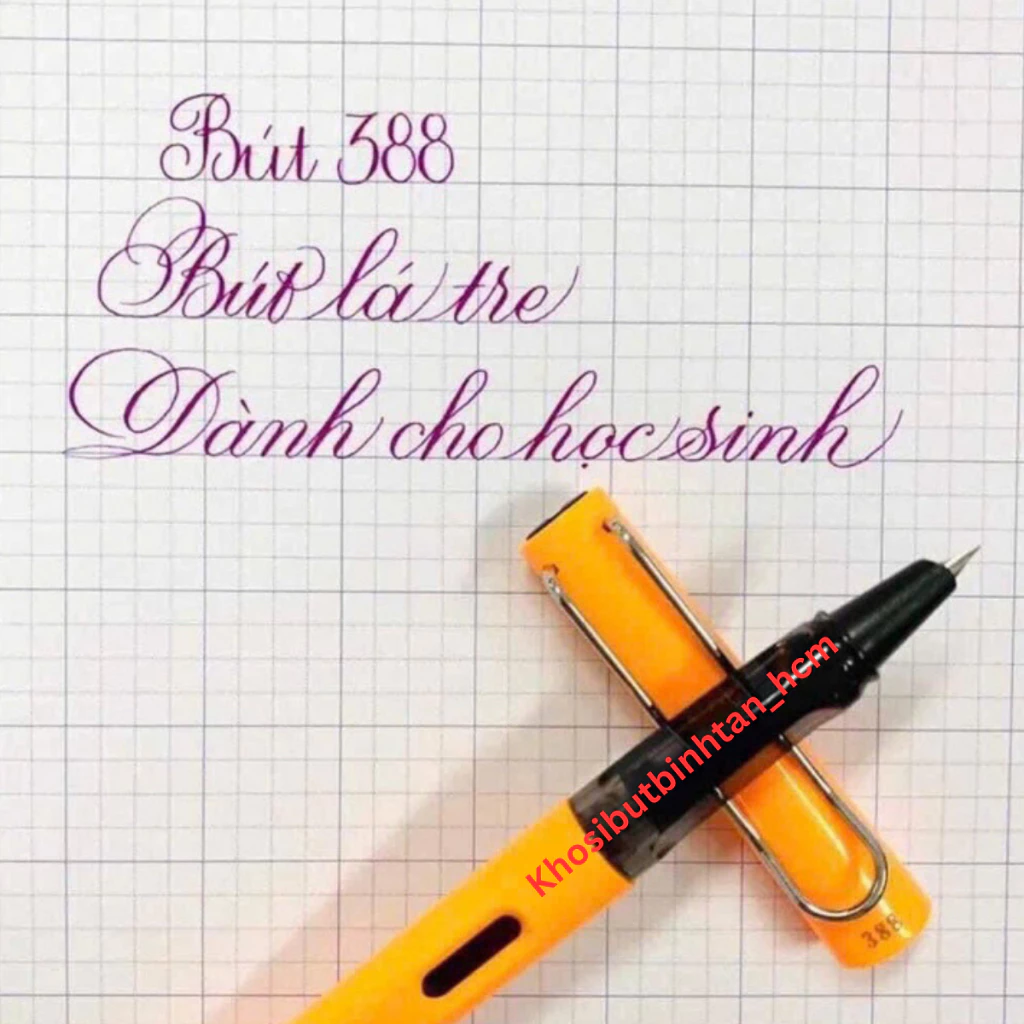 Bút 388
Bút lá tre
Dành cho học sinh
Khosibutbinhtan_hcm
388